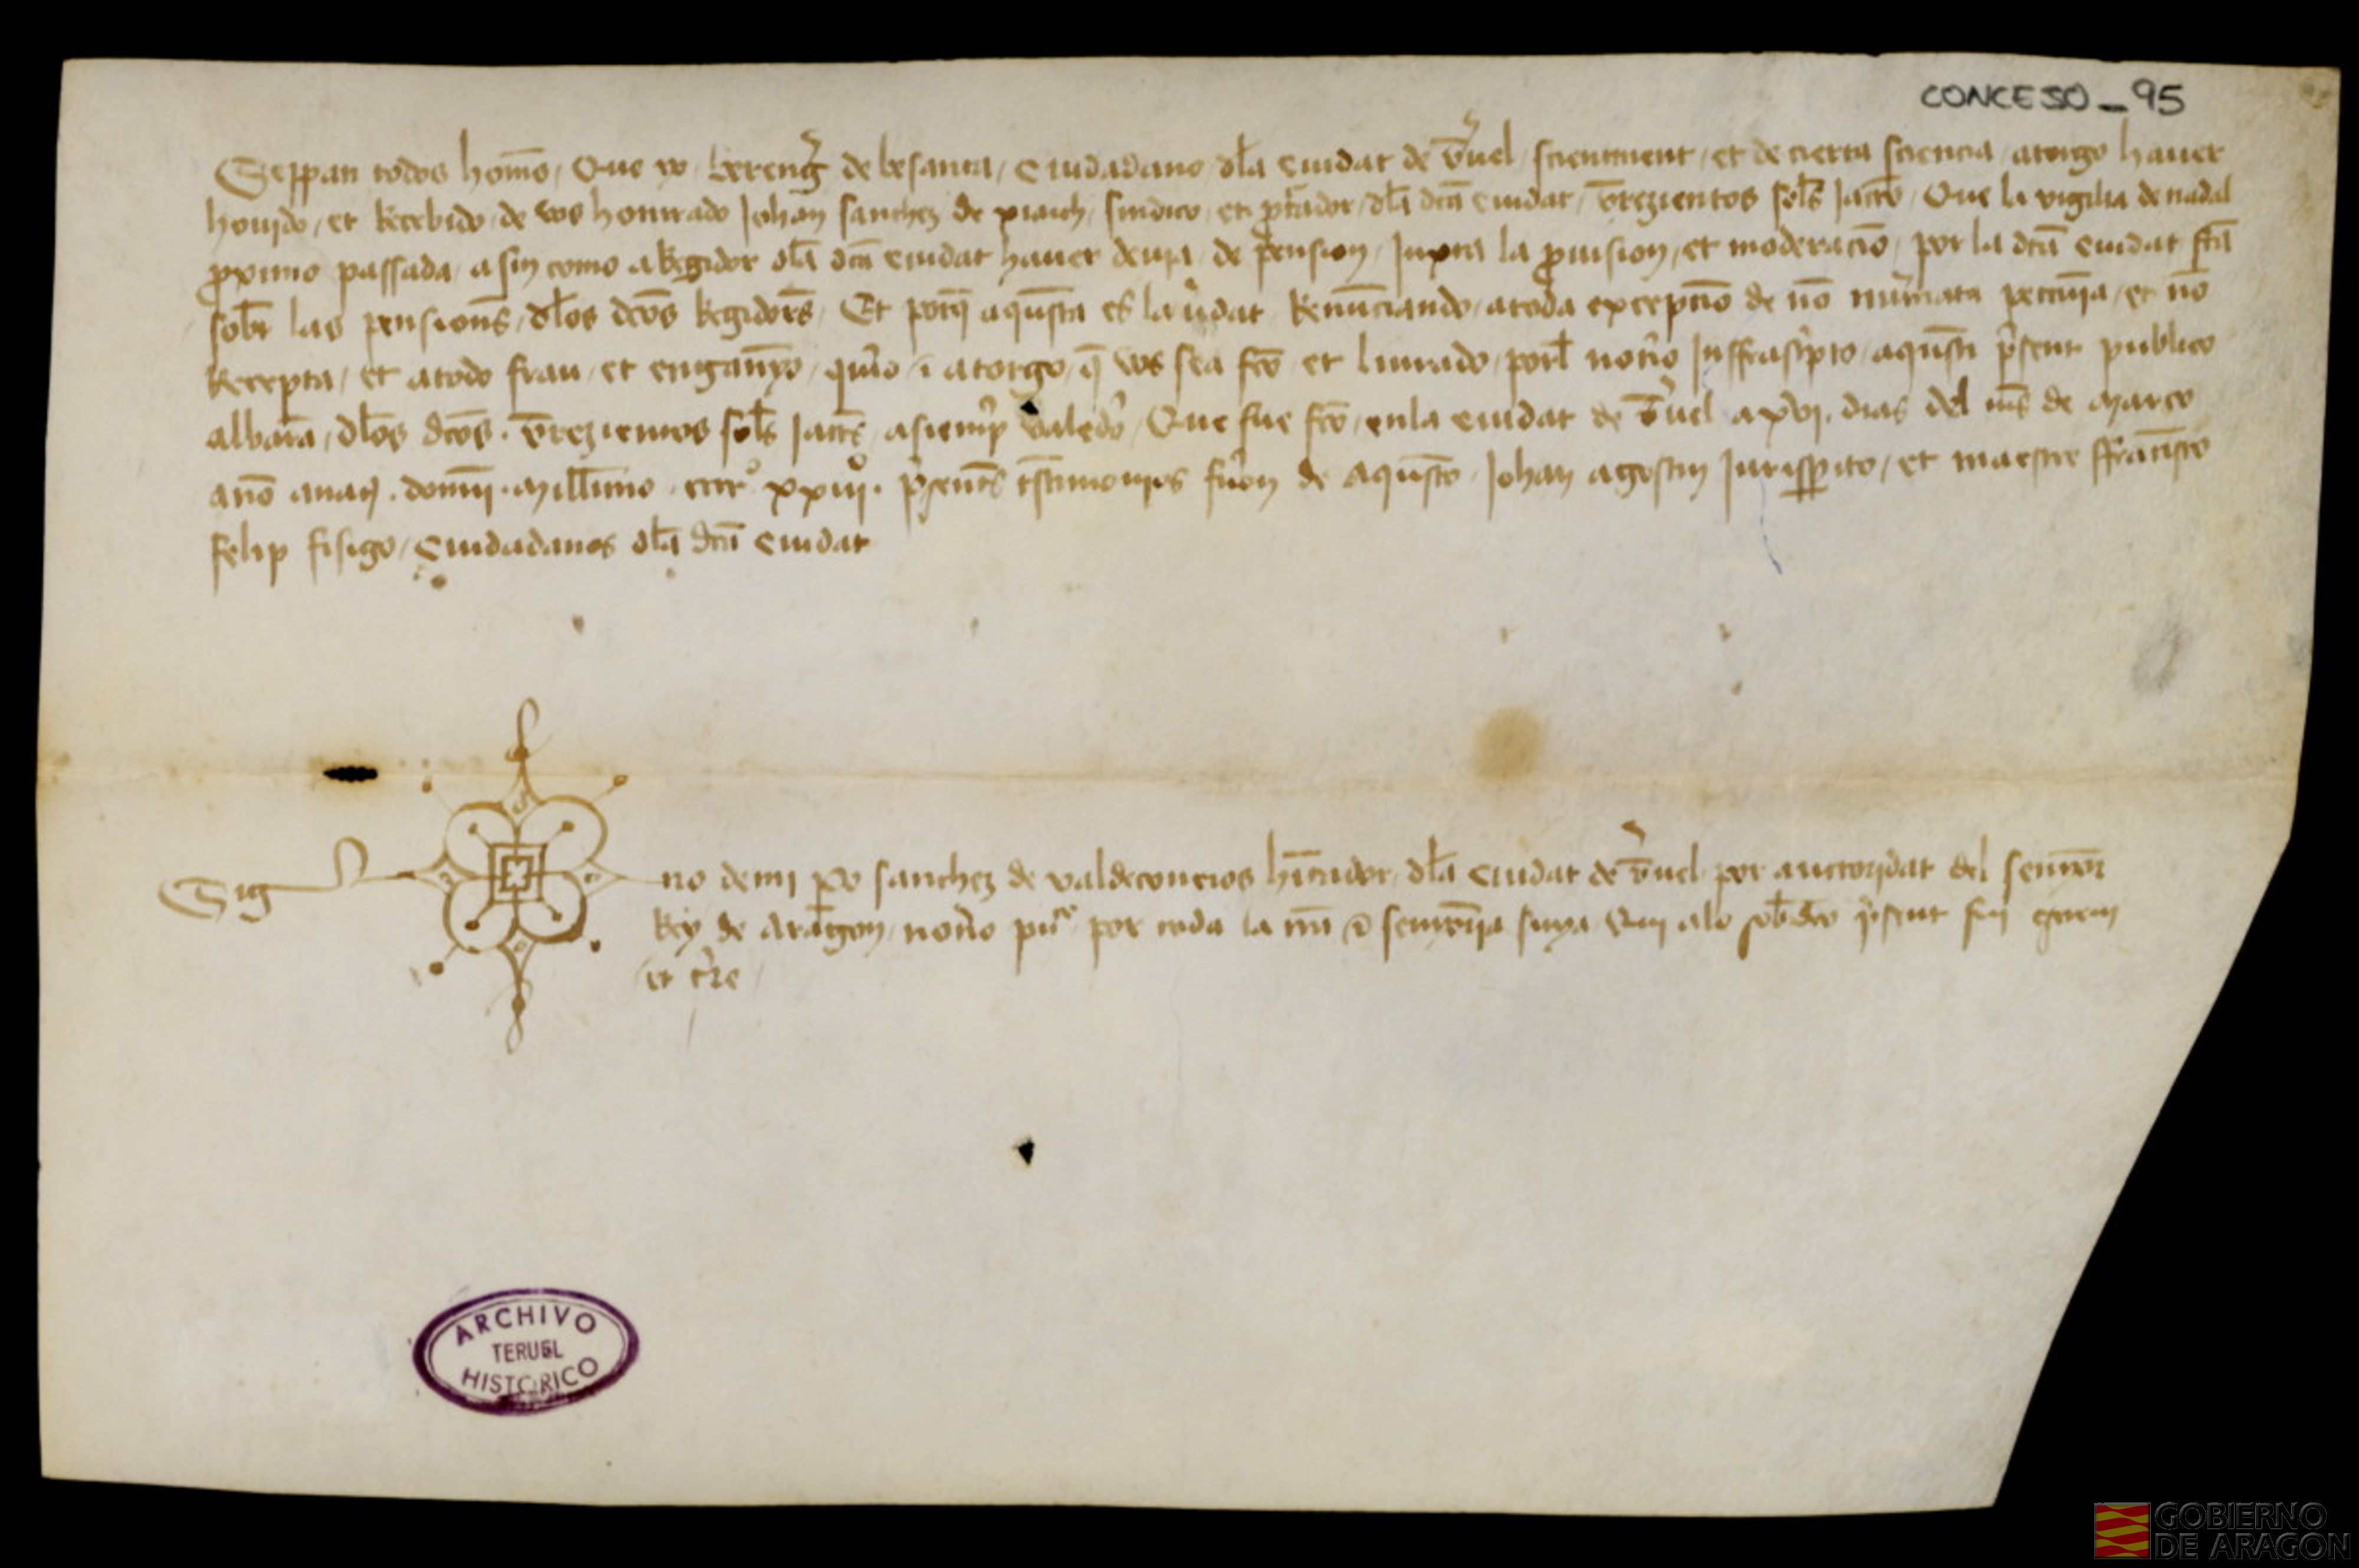 CONCESO_95
Seppan todos hom̄s, Que yo berengr̄ de besanta, Ciudadano dl̄a Ciudat de T̄uel, scientment, et de cierta sciencia, atorgo hauer
houido, et Recebido, de vos honrado Johan sanchez de sindico, et p̄curador, dl̄a dc̄a Ciudat, Trezientos sol̄s Jacc̄s, Que la vigilia de nadal
proximo passada, asin como a Regidor dl̄a dc̄a Ciudat hauer deuia, de pension, Juxta la prouision, et moderacio̅, por la dc̄a Ciudat, fc̄a
sobr̄ las pension̄s, dl̄os dc̄os Regidor̄s, Et porq̄ aqūsta es la ūdat, Renūciando, atoda excepcio̅ de no̅ nūmata peccunia, et no̅
Recepta, et atodo frau, et engan̄yo, qui̅o, ⁊ atorgo, q̄ vos sea fc̄o, et liurado, porl̄ not̄io Jnffrasc̄pto, aqūsti p̄sent publico
albara̅, dl̄os dc̄os. Trezientos sol̄s Jacc̄s, asiemp̄ valedr̄o, Que fue fc̄o, enla Ciudat de T̄uel a xvj. dias del m̄s de Março
an̄o anat̄. domīj. Mill̄imo. ccccº xxiijº. p̄sent̄s t̄stimonjos fūon de aqūsto, Johan agostin Jurisp̄ito, et maestre ffrāc̄isco
felip fisigo, Ciudadanos dl̄a dc̄a Ciudat
Sig no de mj p̄o sanchez de valdeconeios hītador, dl̄a Ciudat de T̄uel, por auctorjdat del senyor
Rey de Aragon, not̄io pu̅co por toda la t̄ra ⁊ senyoria suya, Qui alo sob̄dc̄o p̄sent fuj
et
ARCHIVO
TERUEL
HISTORICO
GOBIERNO
DE ARAGON